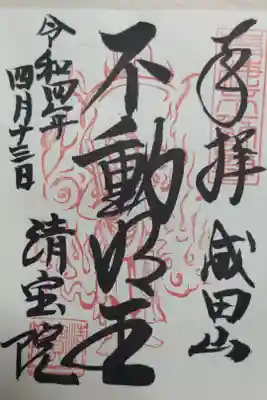 奉拝 成田山
不動明王
令和四年
四月十三日
清宝院